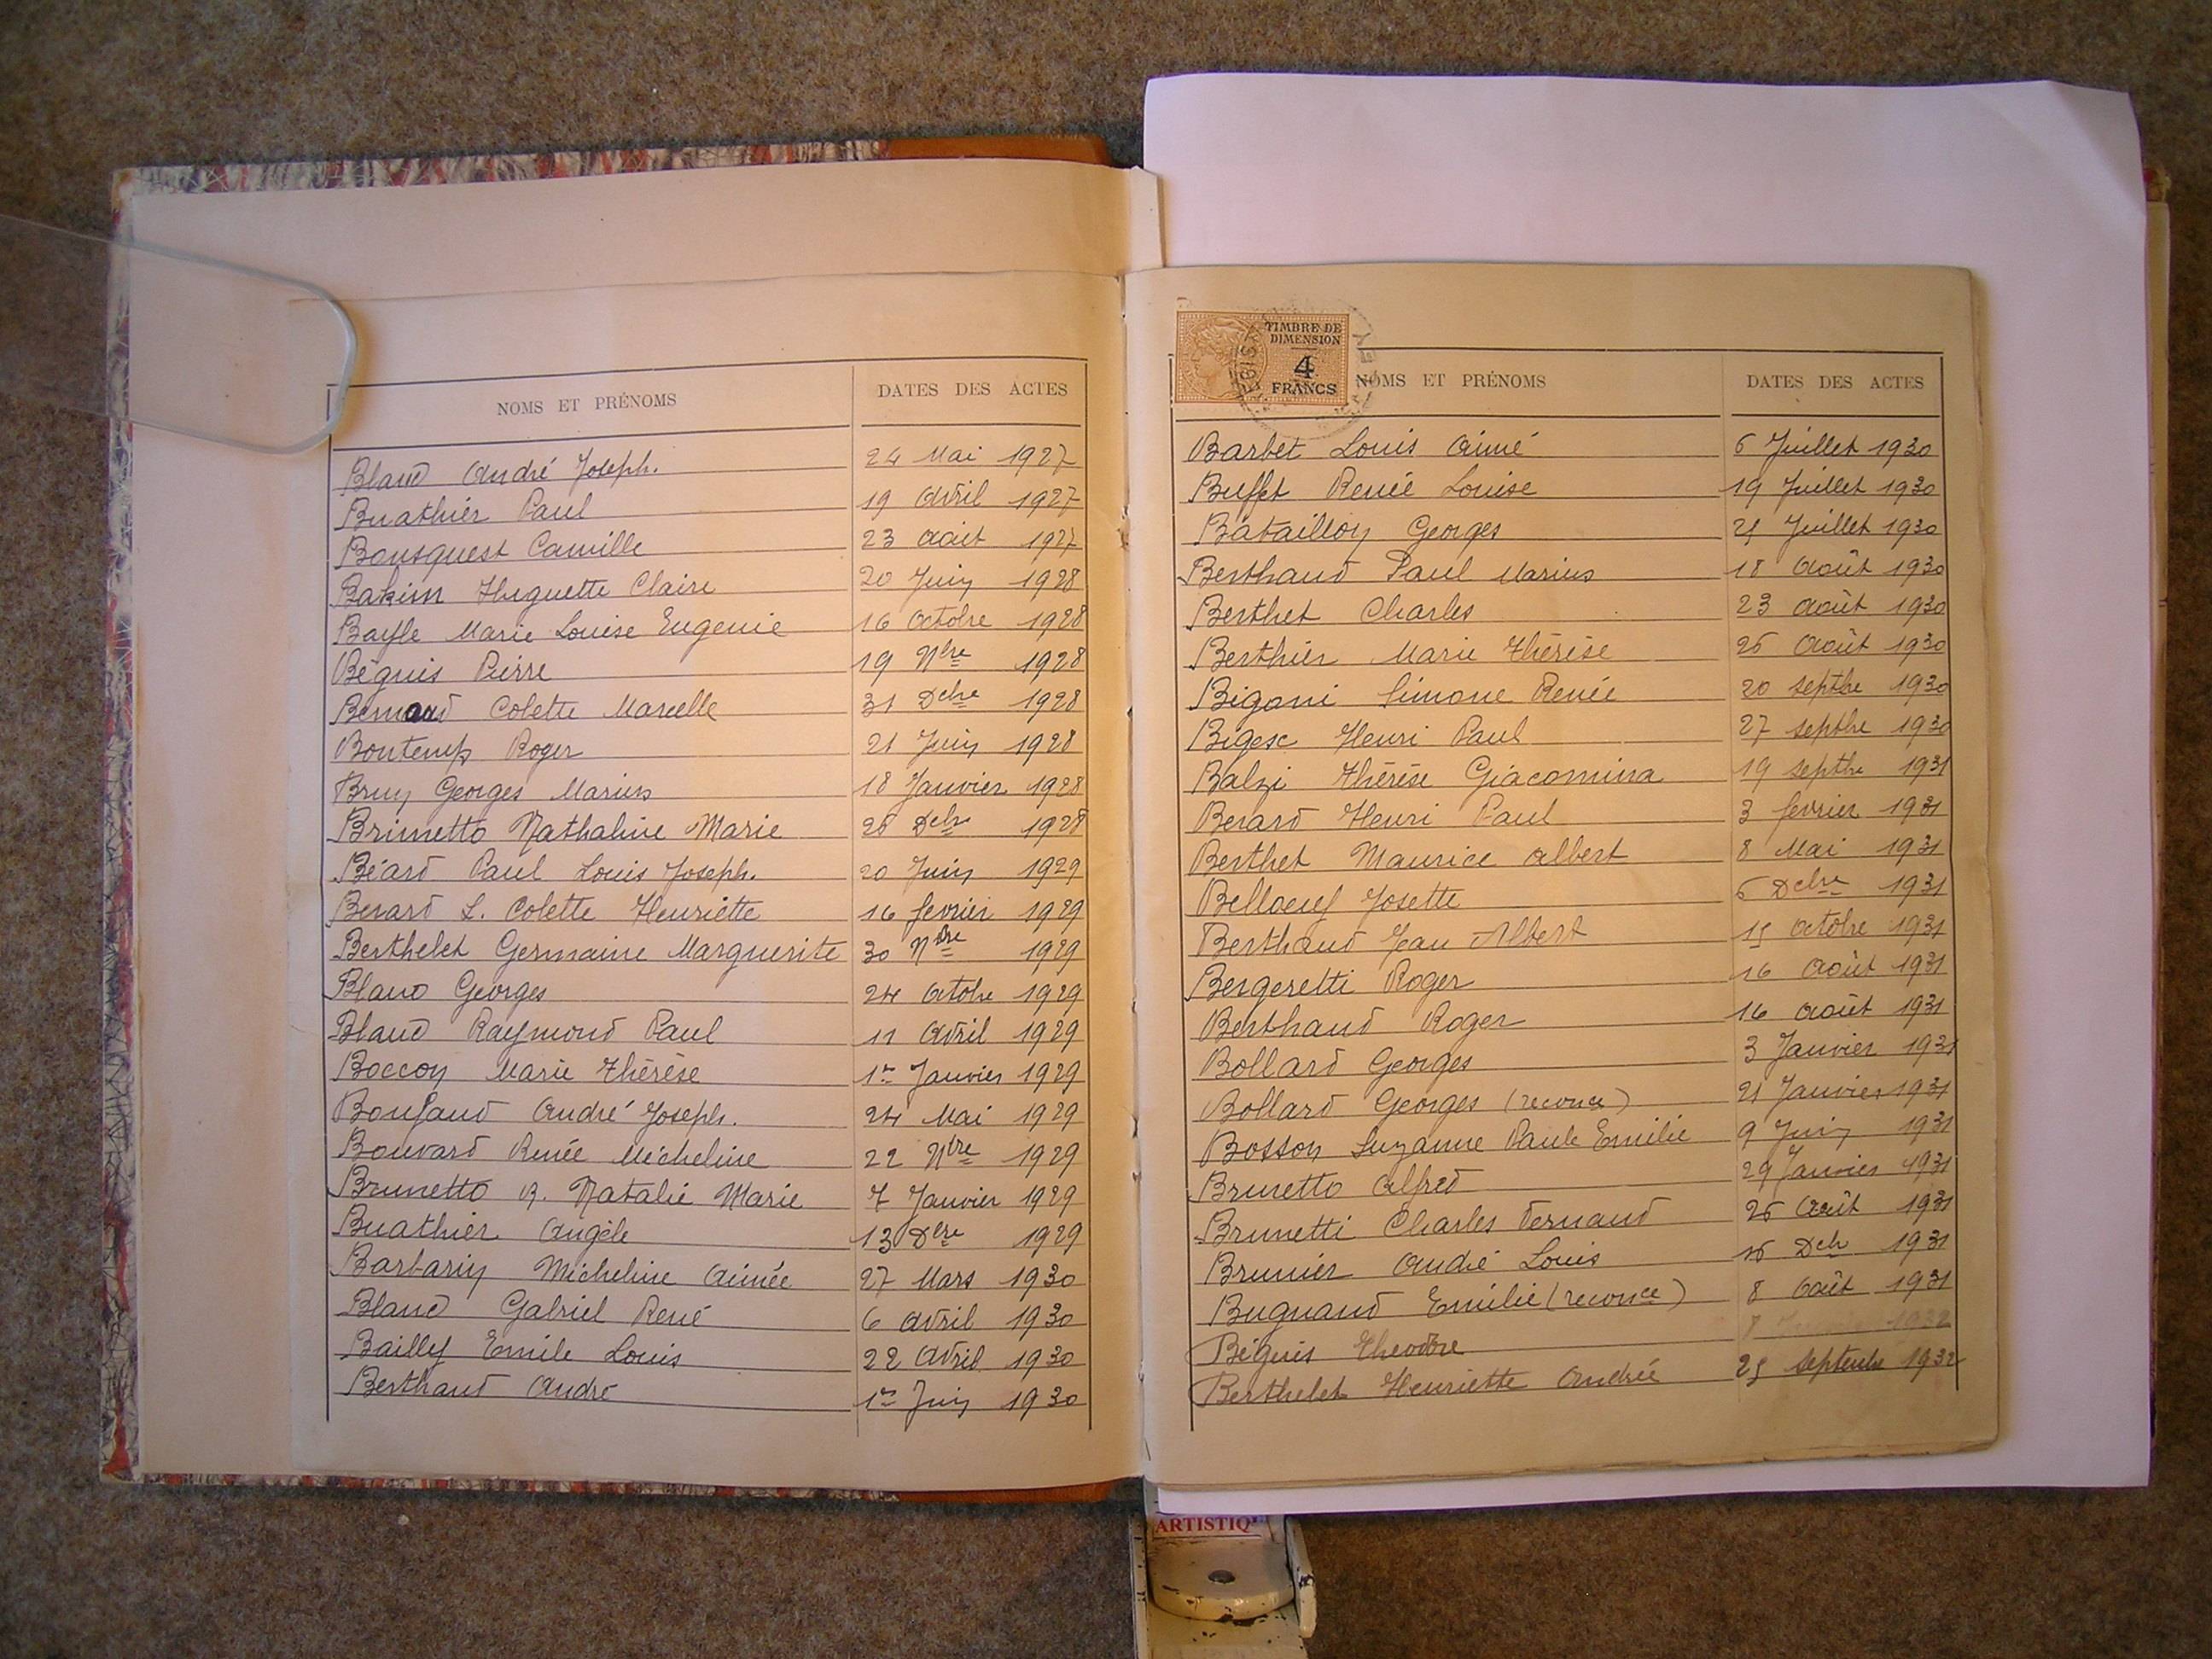 NOMS ET PRÉNOMS DATES DES ACTES
Bland André Joseph. 24 Mai 1927
Buathier Paul 19 Avril 1927
Bousquest Camille 23 Aout 1927
Bakim Huguette Claire 20 Juin 1928
Bayle Marie Louise Eugenie 16 Octobre 1928
Béguis Pierre 19 Nbre 1928
Bernard Colette Marcelle 31 Dcbre 1928
Bontemps Roger 21 Juin 1928
Bruy Georges Marius 18 Janvier 1928
Brimetto Nathaline Marie 26 Dcbre 1928
Béard Paul Louis Joseph. 20 Juin 1929
Berard L. Colette Henriette 16 fevrier 1929
Berthelet Germaine Marguerite 30 Nbre 1929
Blanc Georges 24 Octobre 1929
Bland Raymond Paul 11 Avril 1929
Boccon Marie Thérèse 1er Janvier 1929
Boufaud André Joseph. 24 Mai 1929
Bouvard Renée Micheline 22 Nbre 1929
Brunetto R. Natalie Marie 7 Janvier 1929
Buathier Angèle 13 Dbre 1929
Barbarin Micheline Aimée 27 Mars 1930
Bland Gabriel René 6 Avril 1930
Bailly Emile Louis 22 Avril 1930
Berthaud André 1er Juin 1930
TIMBRE DE
DIMENSION
4
FRANCS
NOMS ET PRÉNOMS DATES DES ACTES
Barbet Louis Aimé 6 Juillet 1930
Buffet Renée Louise 19 Juillet 1930
Bataillon Georges 21 Juillet 1930
Berthaud Paul Marius 18 Août 1930
Berthet Charles 23 Août 1930
Berthier Marie Thérèse 26 Août 1930
Bigoni Simone Renée 20 septbre 1930
Bigex Henri Paul 27 septbre 1930
Balzi Thérèse Giacomina 19 septbre 1931
Berard Henri Paul 3 fevrier 1931
Berthet Maurice Albert 8 Mai 1931
Belloeuf Josette 6 Dcbre 1931
Berthaud Jean Albert 15 Octobre 1931
Bergeretti Roger 16 Août 1931
Berthaud Roger 16 Août 1931
Bollard Georges 3 Janvier 1931
Bollard Georges (reconce) 21 Janvier 1931
Bosson Suzanne Paule Emilie 9 Juin 1931
Brunetto Alfred 29 Janvier 1931
Brunetti Charles Fernand 26 Août 1931
Brunier André Louis 16 Dcb 1931
Bugnand Emilie (reconce) 8 Août 1931
Béguis Theodore 1932
Berthelet Henriette Andrée 25 septembre 1932
ARTISTIQ